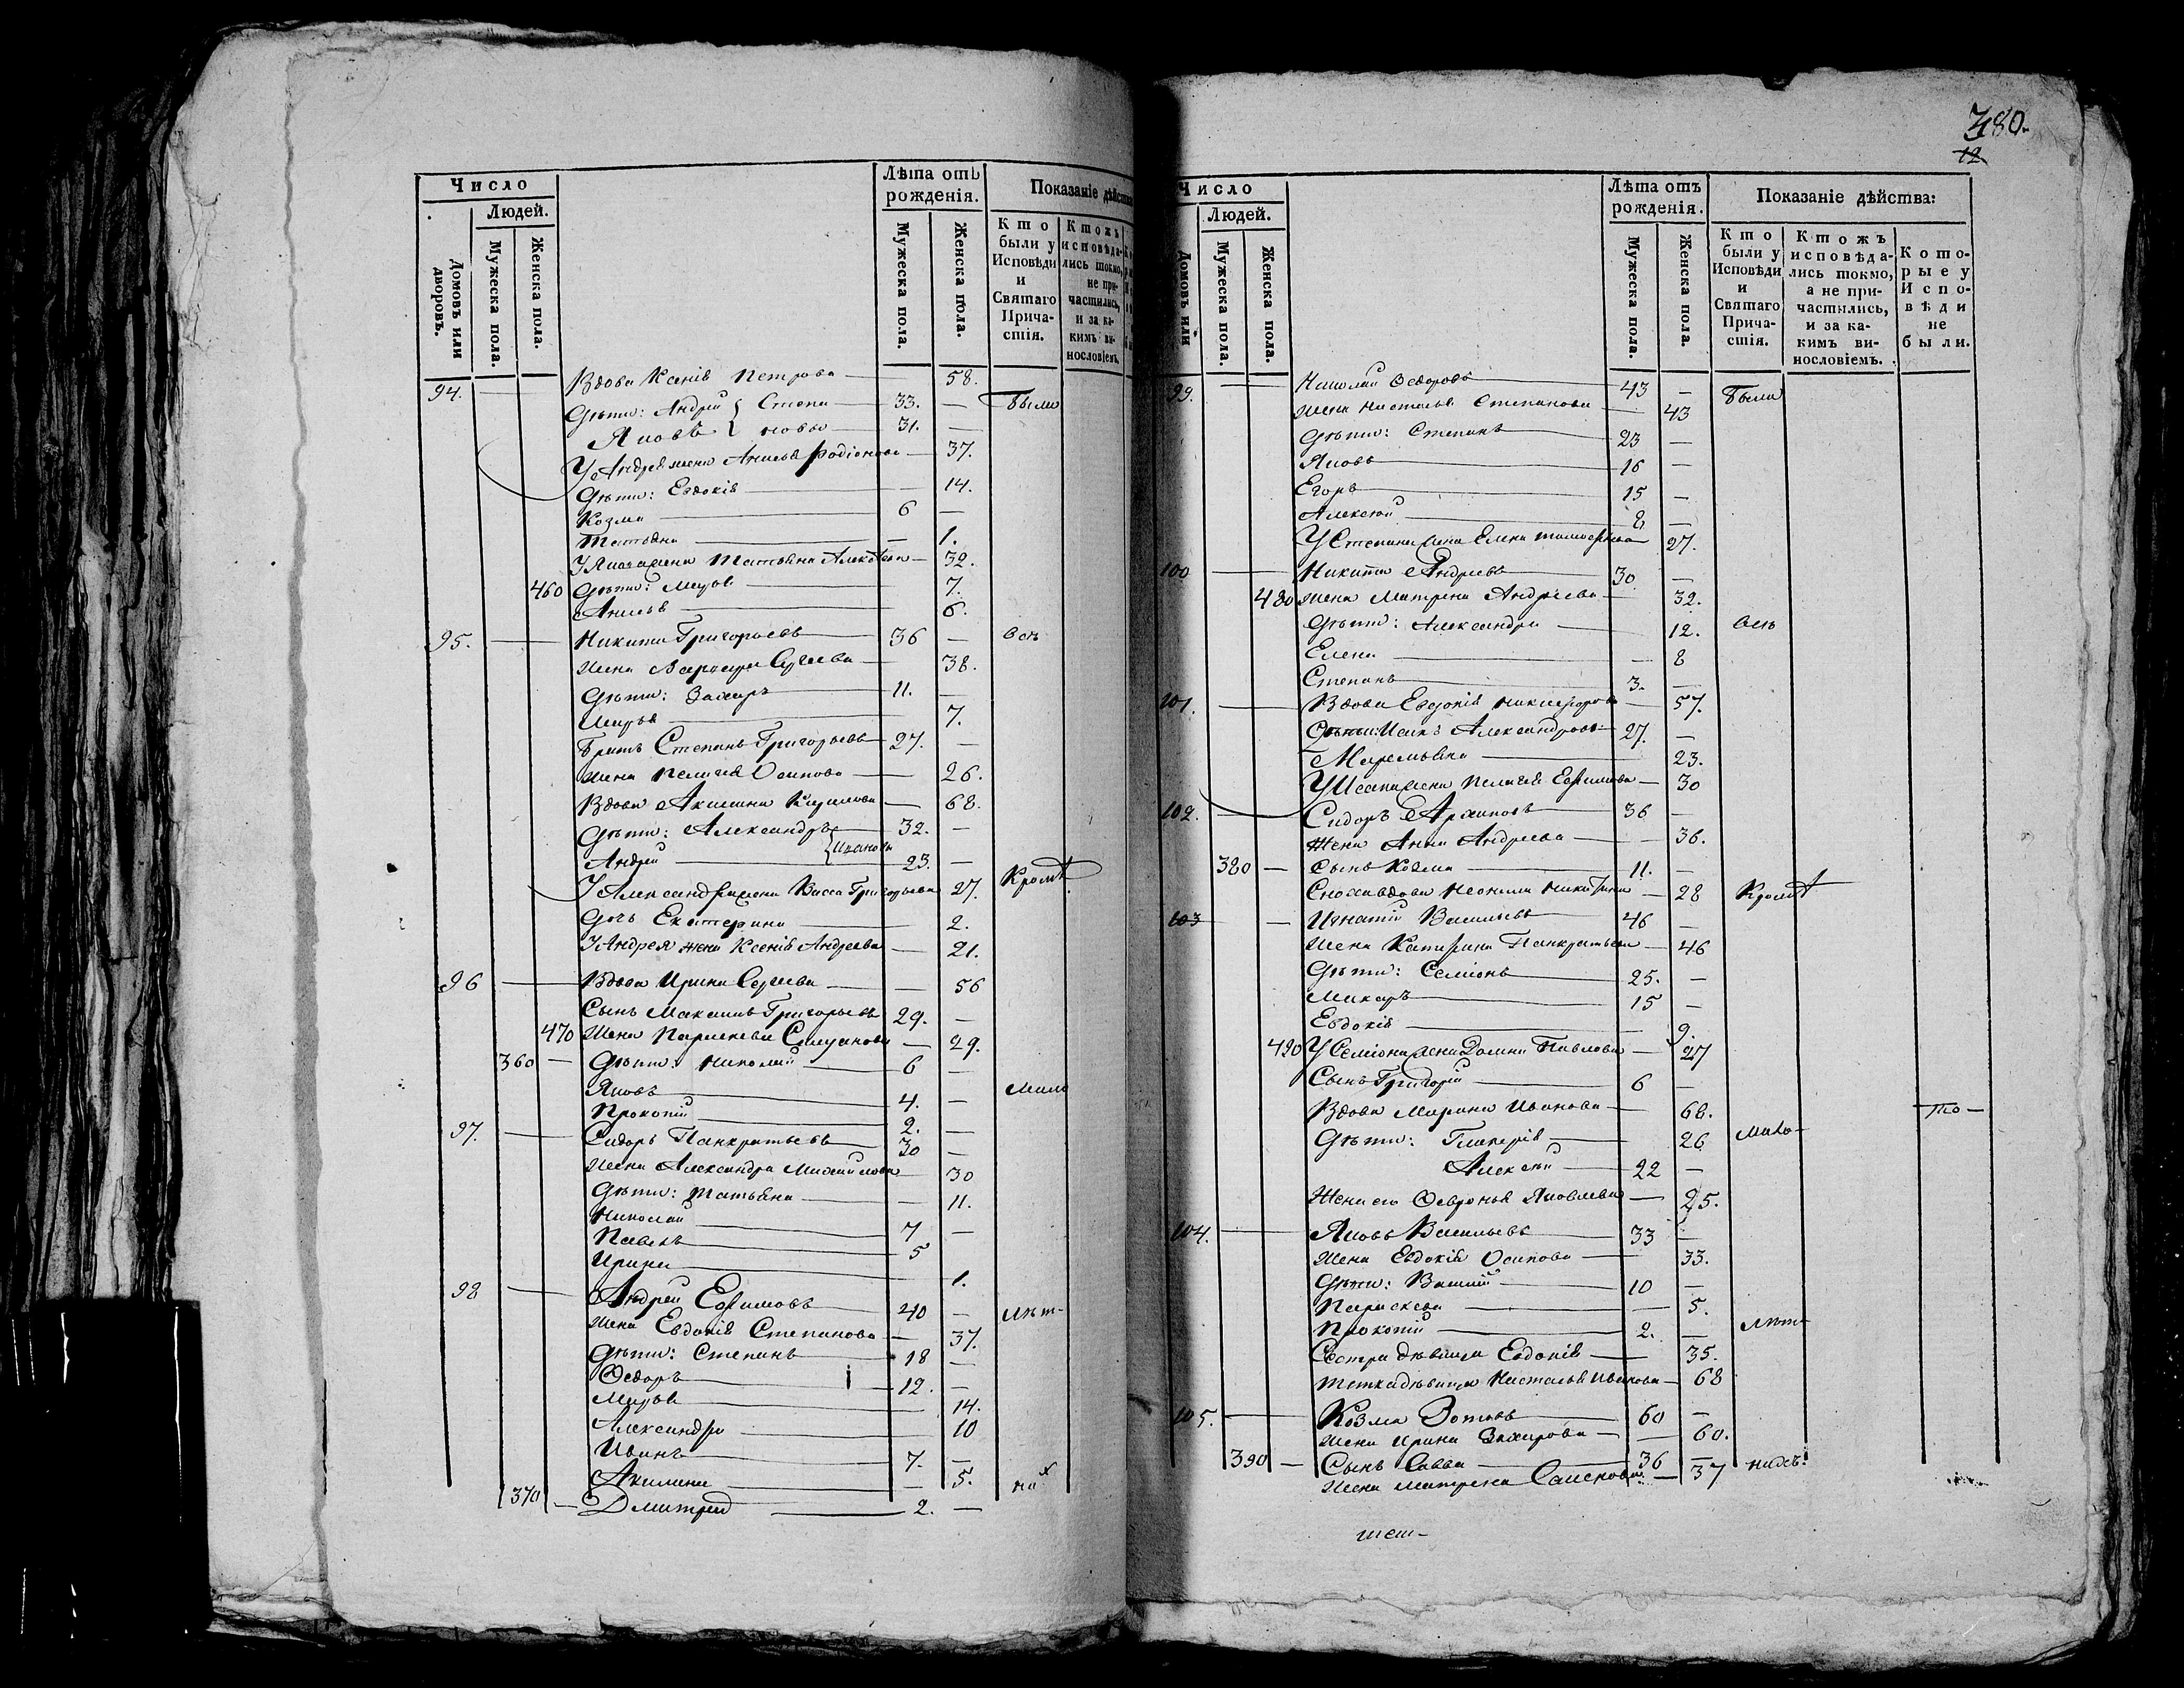 Число
Людей.
Домовъ или дворовъ.
Мужеска пола.
Женска пола.
Лѣта отъ рожденія.
Мужеска пола.
Женска пола.
Показаніе дѣйст
Кто были у Исповѣди и Святаго Прича-стія.
Ктожъ исповѣда-лись токмо, не при-частились, и за ка-кимъ ви-нословіемъ.
94. Вдова Ксенія Петрова — 58.
Дѣти: Андрей { Степа — 33. — Были
Яковъ { новы — 31. —
У Андрея жена Анисья Родіонова — 37.
Дѣти: Евдокія — 14.
Козма — 6 —
Татьяна — 1.
У Якова жена Татьяна — 32.
460 Дѣти: Марья — 7.
Анисья — 6.
95. — Никита Григорьевъ — 36 — всѣ
Жена Варвара Сергеева — 38.
Дѣти: Захаръ — 11. —
Марья — 7.
Братъ Степанъ Григорьевъ — 27. —
Жена Пелагея Осипова — 26.
Вдова Акилина Кирилова — 68.
Дѣти: Александръ — 32. —
Андрей — { Ивановы 23. —
У Александра жена Васса Григорьева 27. Кромѣ
Дочь Екатерина — 2.
У Андрея жена Ксенія Андреева — 21.
96 — Вдова Ирина Сергеева — 56
Сынъ Максимъ Григорьевъ 29. —
470 Жена Параскева — 29.
360 — Дѣти: Николай — 6 —
Яковъ — 4. — мало
Прокопій — 2. —
97. — Сидоръ Панкратьевъ — 30 —
Жена Александра Михайлова — 30
Дѣти: Татьяна — 11.
Николай — 7 —
Павелъ — 5
Ирина — 1.
98 — Андрей Ефимовъ — 40 — лѣт-
Жена Евдокія Степанова — 37.
Дѣти: Степанъ — 18 —
Ѳедоръ — 12. —
Марья — 14.
Александра — 10
Иванъ — 7. —
Акилина — 5. них
370 — Дмитрей — 2. —
380.
12
Число
Людей.
Домовъ или
Мужеска пола.
Женска пола.
Лѣта отъ рожденія.
Мужеска пола.
Женска пола.
Показаніе дѣйства:
Кто были у Исповѣди и Святаго Прича-стія.
Ктожъ исповѣда-лись токмо, а не при-частились, и за ка-кимъ ви-нословіемъ.
Кото-рые у Испо-вѣди не были.
99. — Николай Ѳедоровъ — 43 — Были
Жена Настасья Степанова — 43
Дѣти: Степанъ — 23 —
Яковъ — 16 —
Егоръ — 15 —
Алексей — 8 —
У Степана жена Елена Тимоѳеева 27.
100 — Никита Андреевъ — 30 —
480 Жена Матрена Андреева — 32.
Дѣти: Александра — 12. всѣ
Елена — 8
Степанъ — 3. —
101. — Вдова Евдокія Никифорова — 57.
Дѣти: Исакъ Александровъ — 27. —
Маремьяна — 23.
У Исака жена Пелагея Ефимова — 30
102. — Сидоръ Архиповъ — 36 —
Жена Анна Андреева — 36.
380 — Сынъ Козма — 11. —
Сноха вдова Неонила Никитина — 28 Кромѣ
103 — Игнатій Васильевъ — 46 —
Жена Катерина Панкратьева — 46
Дѣти: Семіонъ — 25. —
Макаръ — 15 —
Евдокія — 9.
490 У Семіона жена Домна Павлова — 27
Сынъ Григорій — 6 —
Вдова Марина Иванова — 68. то —
Дѣти: Гликерія — 26 мало-
Алексей — 22 —
Жена его Ѳевронья Яковлева — 25.
104. — Яковъ Васильевъ — 33 —
Жена Евдокія Осипова — 33.
Дѣти: Василій — 10 —
Параскева — 5.
Прокопій — 2. — лѣт-
Сестра дѣвица Евдокія — 35.
Тетка дѣвица Настасья Иванова — 68
105. — Козма Зотовъ — 60 —
Жена Ирина Захарова — 60.
390 — Сынъ Савва — 36 — нихъ.
Жена Матрена — 37